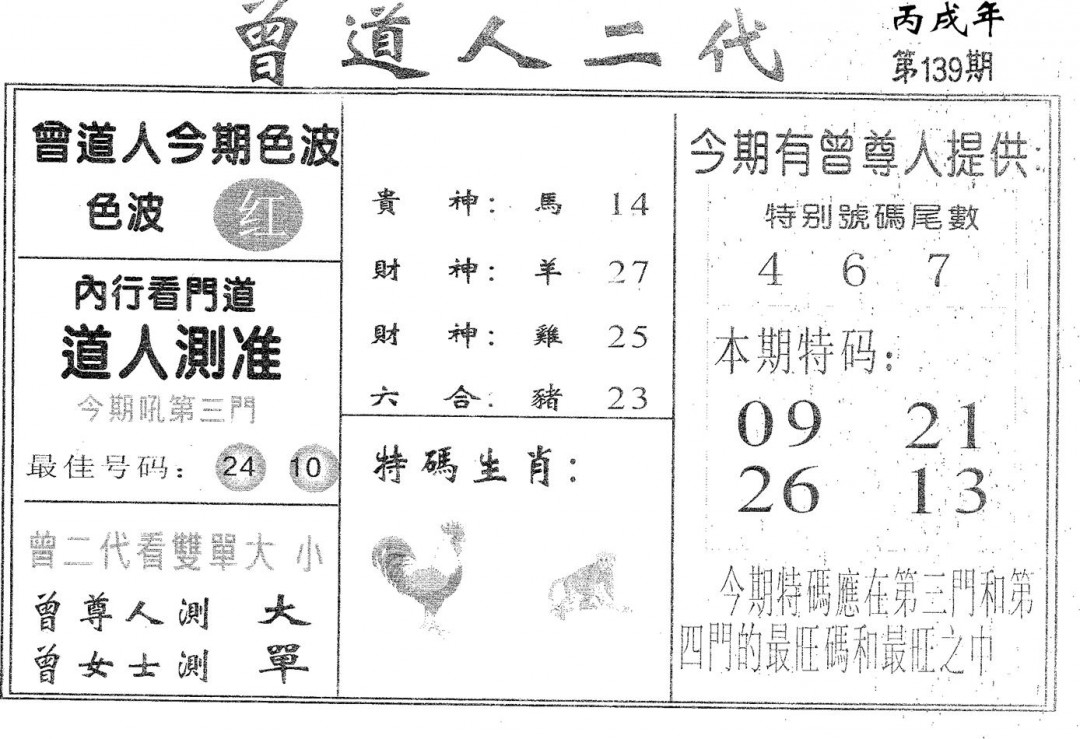 曾道人二代
丙戌年
第139期
曾道人今期色波
色波 红
內行看門道
道人測准
今期吼第三門
最佳号码： 24 10
曾二代看雙單大 小
曾尊人測 大
曾女士測 單
貴 神： 馬 14
財 神： 羊 27
財 神： 雞 25
六 合： 豬 23
特碼生肖：
今期有曾尊人提供：
特别號碼尾數
4 6 7
本期特码：
09 21
26 13
今期特碼應在第三門和第
四門的最旺碼和最旺之中